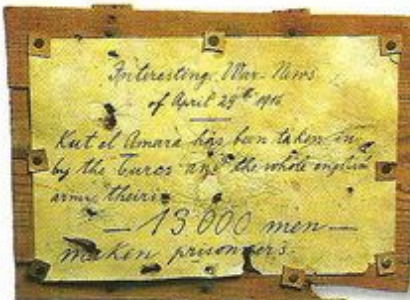 Interesting War-News
of April 29th 1916
Kut el Amara has been taken in
by the Turcs and the whole english
army theirin
— 13 000 men —
maken prisonners.